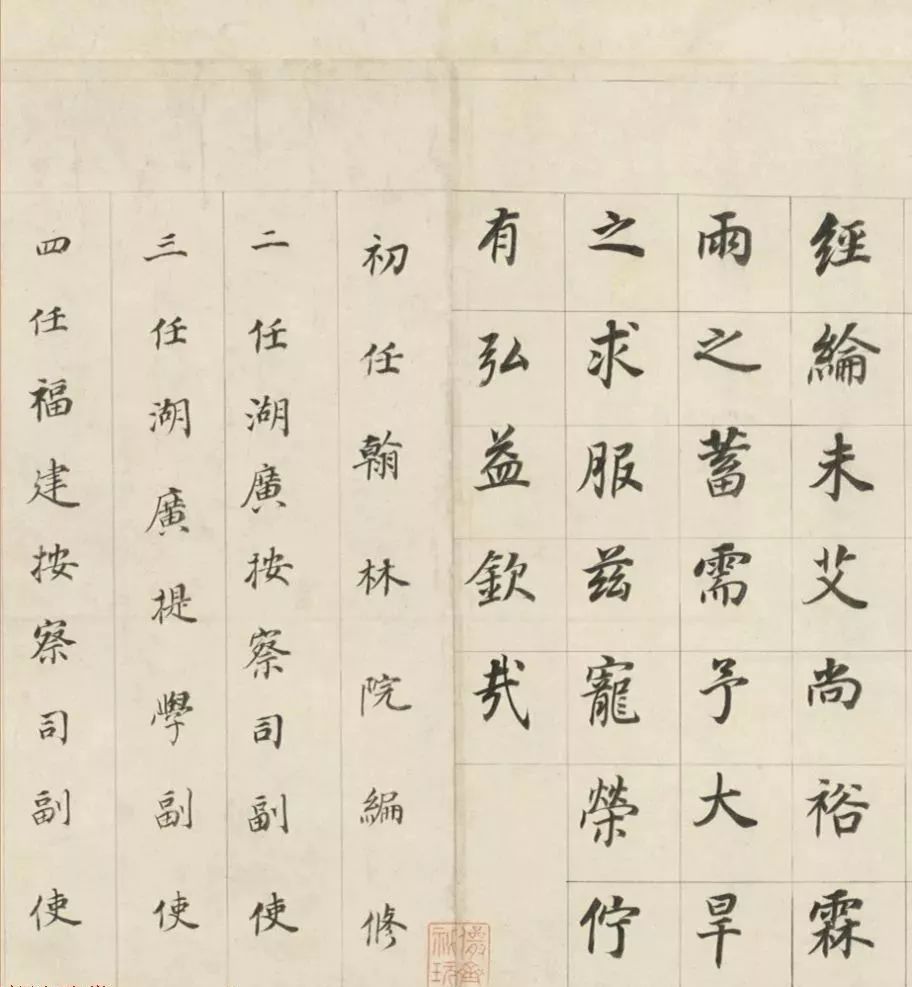 經綸未艾尚裕霖
雨之蓄需予大旱
之求服茲寵榮佇
有弘益欽哉
初任翰林院編修
二任湖廣按察司副使
三任湖廣提學副使
四任福建按察司副使